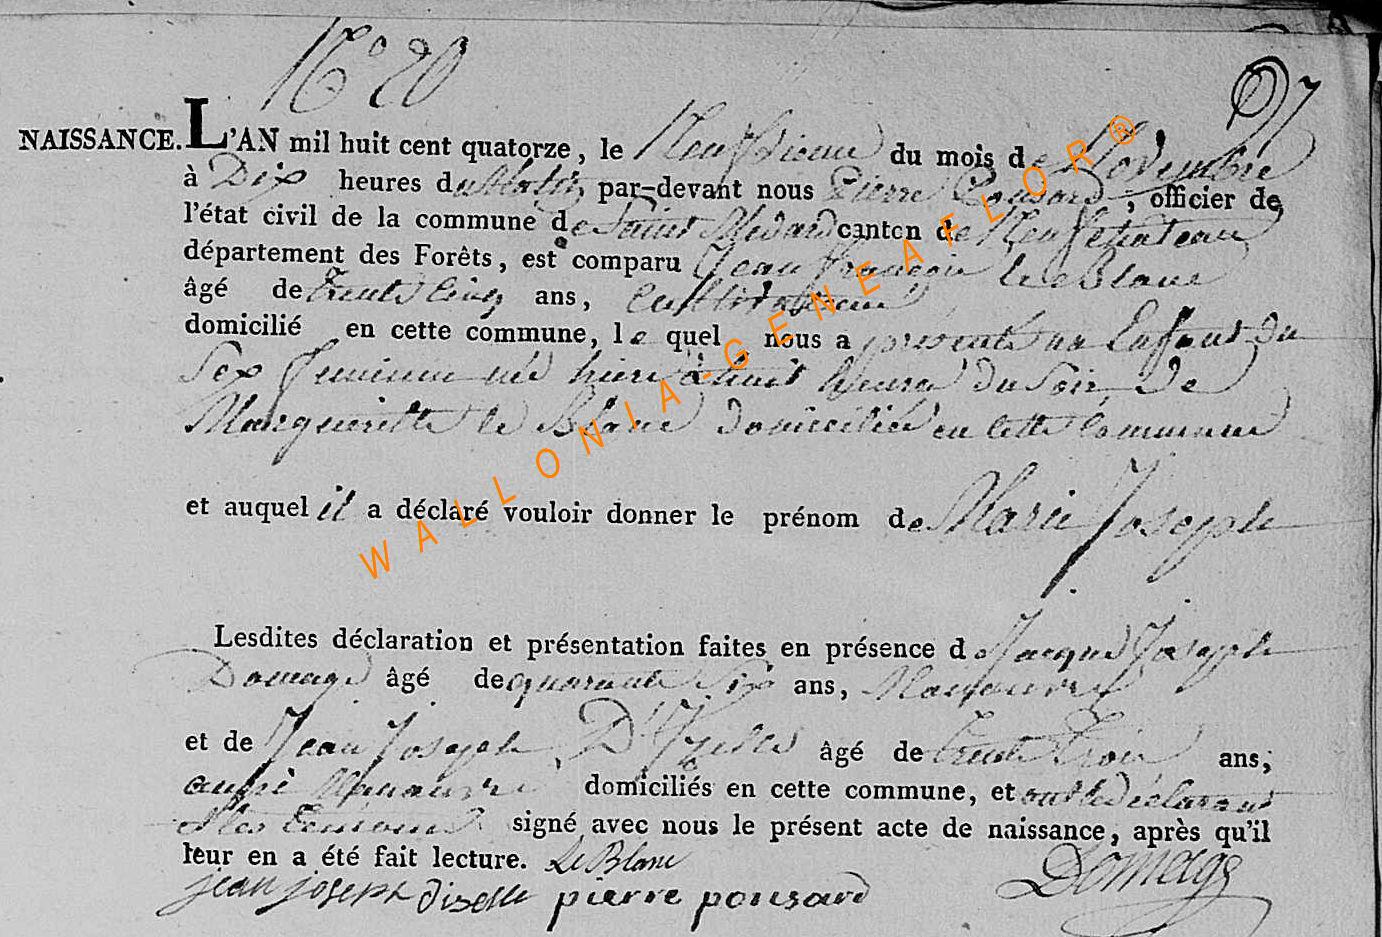 N° 20
27
NAISSANCE. L'AN mil huit cent quatorze, le Neufvieme du mois de Novembre
à Dix heures du Matin par-devant nous Pierre Ponsard, officier de
l'état civil de la commune de Saint Medard canton de Neufchateau
département des Forêts, est comparu Jean françois le Blanc
âgé de trente cinq ans, cultivateur
domicilié en cette commune, le quel nous a presenté un Enfant du
Sex feminin né hiere à huit heures du Soir De
Margueritte le Blanc domiciliée en cette commune
et auquel il a déclaré vouloir donner le prénom de Marie Joseph
Lesdites déclaration et présentation faites en présence de Jacque Joseph
Domage âgé de quarante Six ans, Manouvre
et de Jean Joseph D' âgé de trente trois ans,
aussi Manouvre domiciliés en cette commune, et ont le déclarant
et les temoins signé avec nous le présent acte de naissance, après qu'il
leur en a été fait lecture. Le Blanc
jean joseph diselle pierre ponsard Domage
WALLONIA-GENEAFLOR®